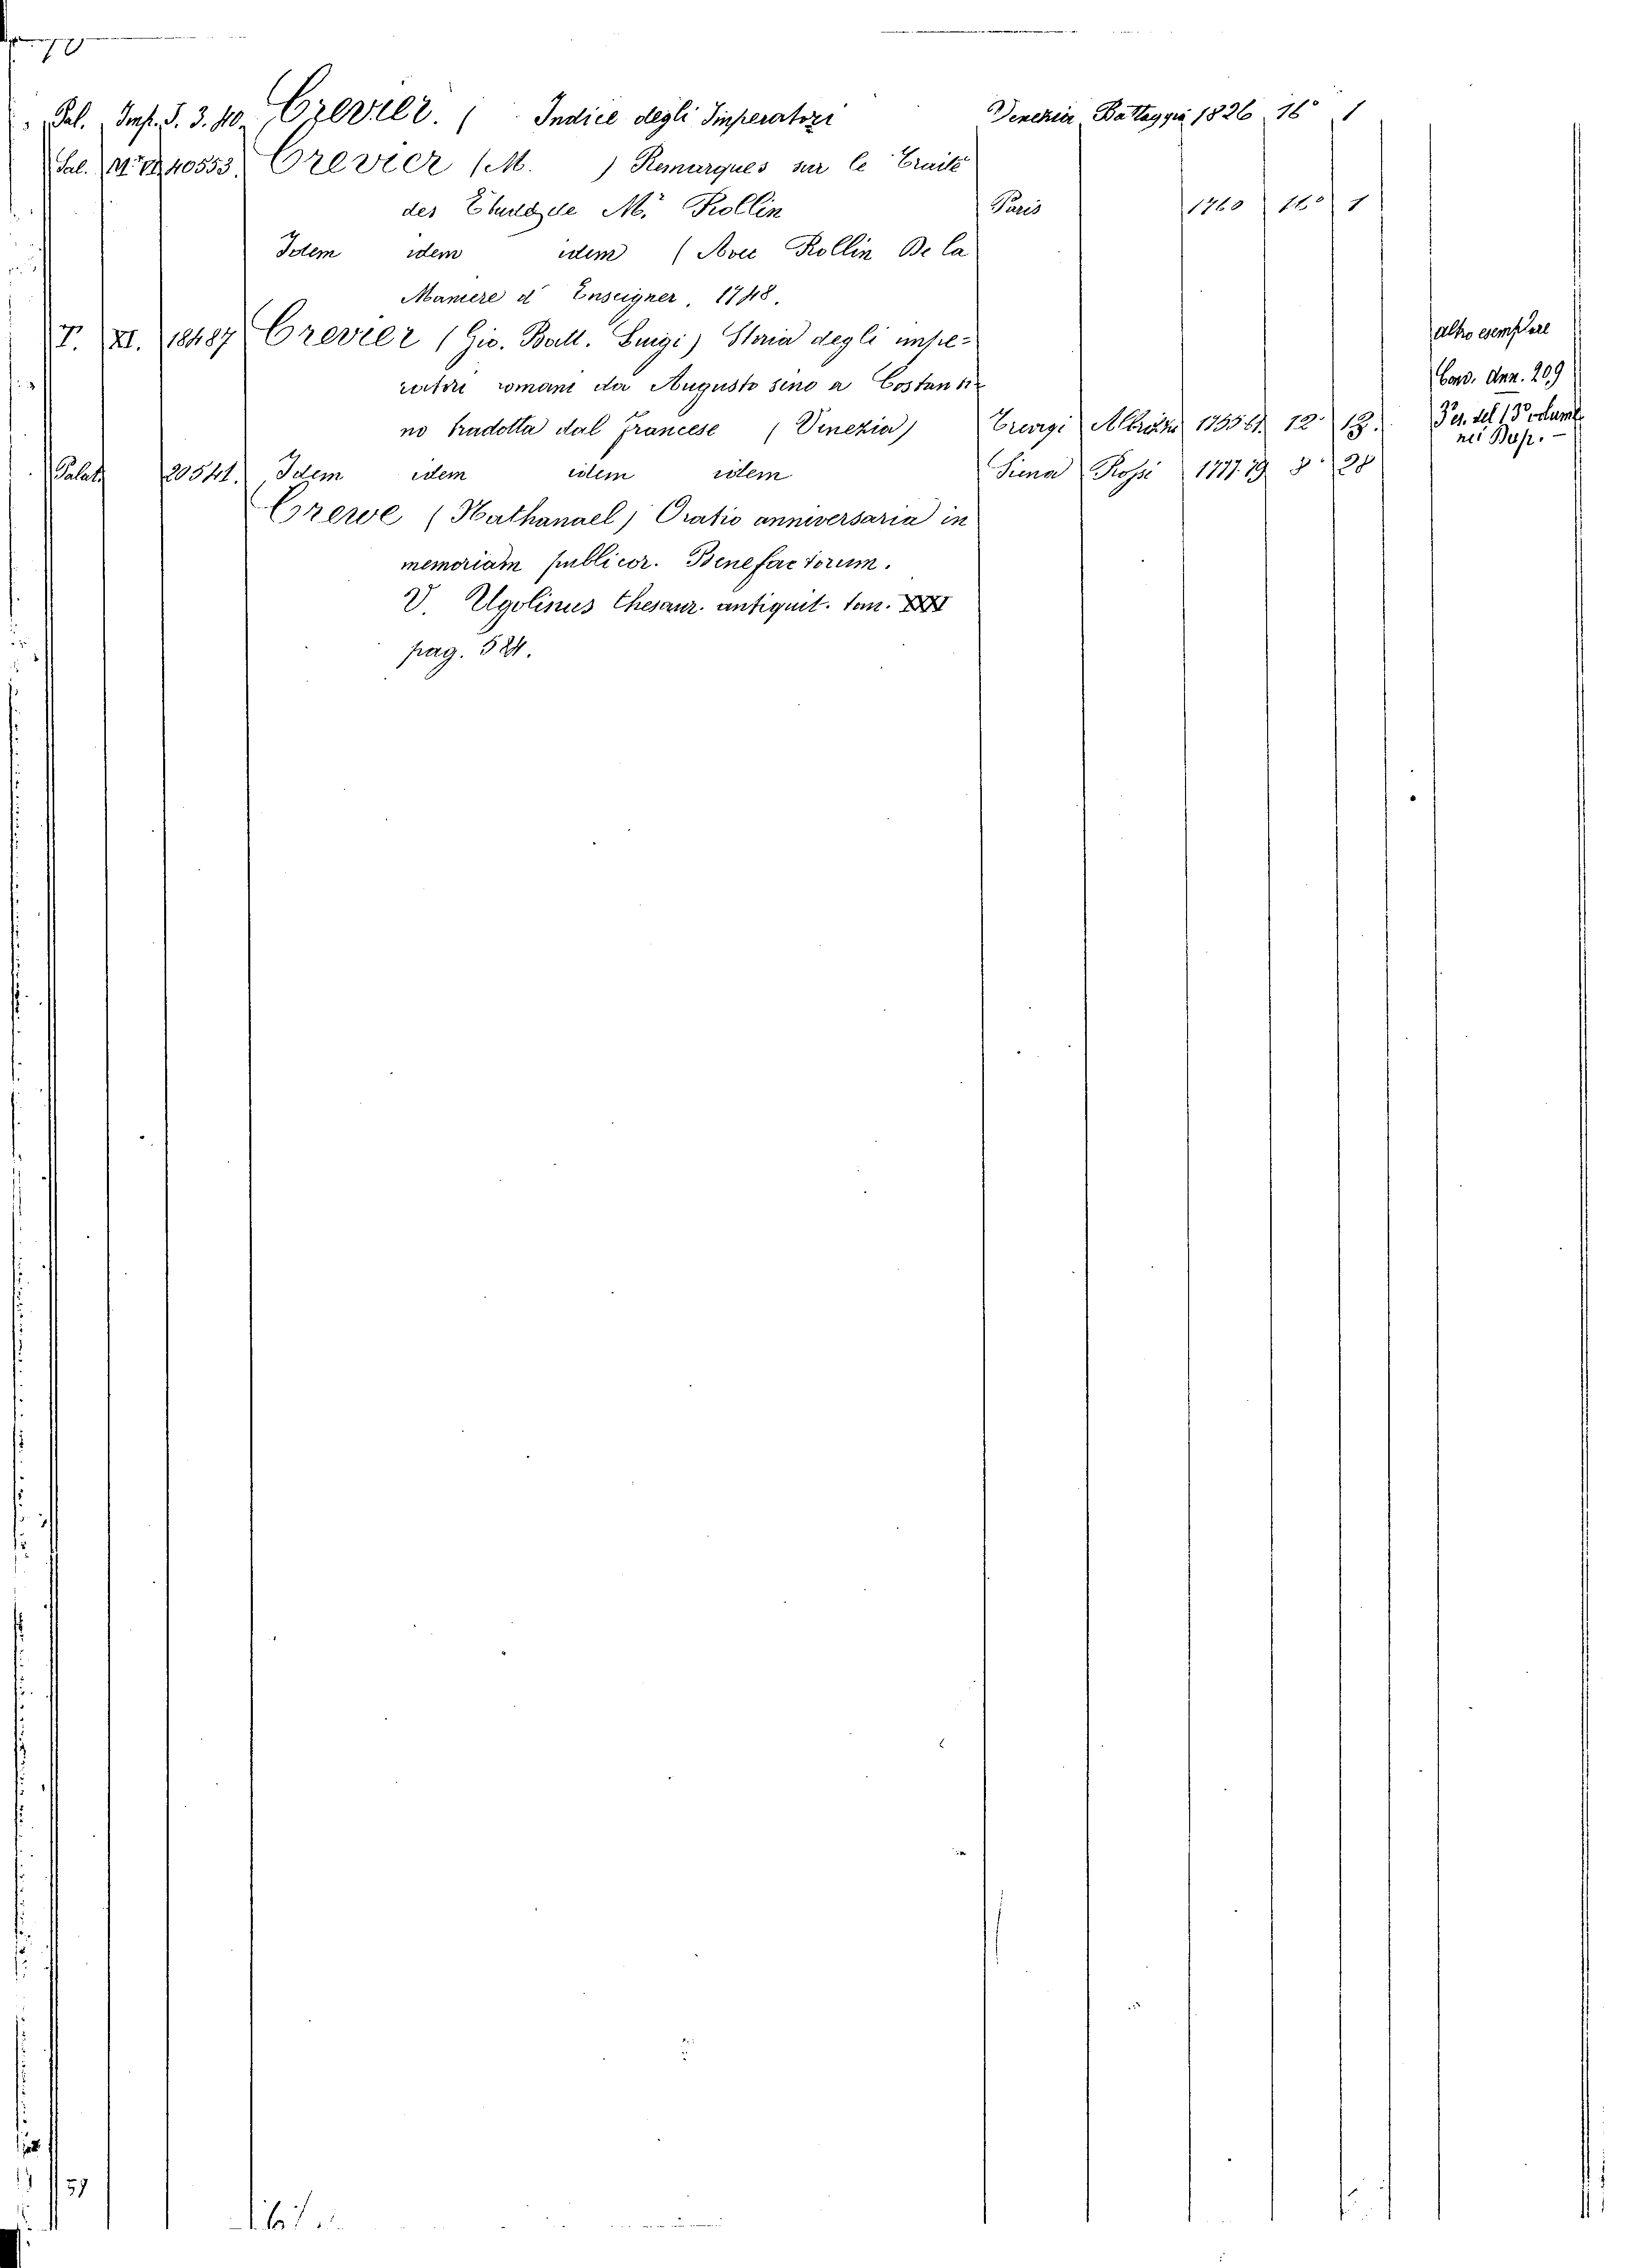 70
Pal. Imp. S. 3. 40. Crevier. ( Indice degli Imperatori Venezia Battaggia 1826 16° 1
Sal. 40553. Crevier (M. ) Remarques sur le Traité
des Etudes de Mr. Rollin Paris 1760 16° 1
Idem idem idem (Avec Rollin De la
Maniere d' Enseigner. 1748.
T. XI. 18487 Crevier (Gio. Batt. Luigi) Storia degli impe=
altro esemplare
ratori romani da Augusto sino a Costanti=
Cons. Ann. 209
no tradotta dal francese (Venezia) Albrizzi 12° 13.
Palat. 20541. Idem idem idem idem Siena Rossi 1777.79 8° 28
Crewe (Nathanael) Oratio anniversaria in
memoriam publicor. Benefactorum.
V. Ugolinus Thesaur. antiquit. tom. XXXI
pag. 524.